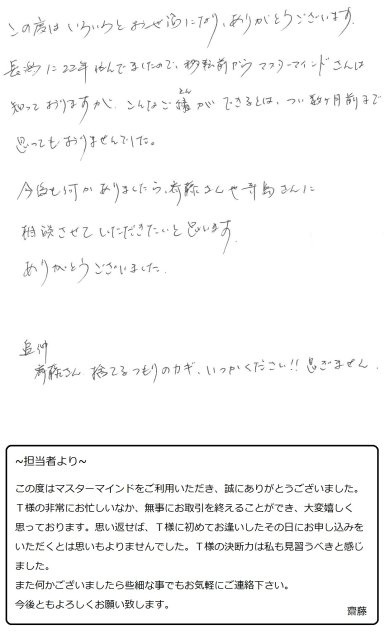 この度はいろいろとお世話になり、ありがとうございます。
長崎に22年住んでましたので、移転前からマスターマインドさんは
知っておりますが、こんなご縁ができるとは、つい数ヶ月前まで
思ってもおりませんでした。
今後も何かありましたら、斎藤さんや寺島さんに
相談させていただきたいと思います。
ありがとうございました。
追伸
斎藤さん 捨てるつもりのカギ、いつかください!! 急ぎません。
~担当者より~
この度はマスターマインドをご利用いただき、誠にありがとうございました。
T様の非常にお忙しいなか、無事にお取引を終えることができ、大変嬉しく
思っております。思い返せば、T様に初めてお逢いしたその日にお申し込みを
いただくとは思いもよりませんでした。T様の決断力は私も見習うべきと感じ
ました。
また何かございましたら些細な事でもお気軽にご連絡下さい。
今後ともよろしくお願い致します。
齋藤